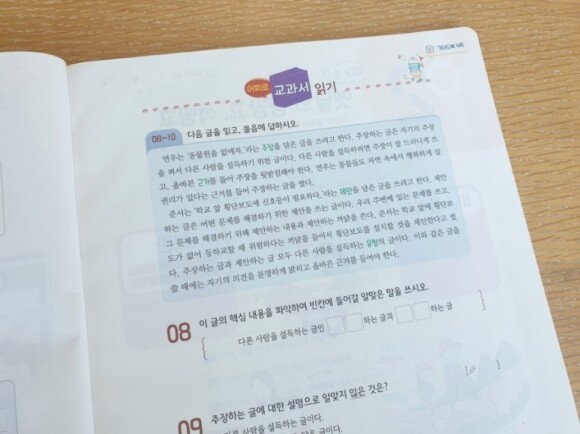 어휘로 교과서 읽기
08~10 다음 글을 읽고, 물음에 답하시오.
연우는 '동물원을 없애자.'라는 주장을 담은 글을 쓰려고 한다. 주장하는 글은 자기의 주장
을 펴서 다른 사람을 설득하기 위한 글이다. 다른 사람을 설득하려면 주장이 잘 드러나게 쓰
고, 올바른 근거를 들어 주장을 뒷받침해야 한다. 연우는 동물들도 자연 속에서 행복하게 살
권리가 있다는 근거를 들어 주장하는 글을 썼다.
준서는 '학교 앞 횡단보도에 신호등이 필요하다.'라는 제안을 담은 글을 쓰려고 한다. 제안
하는 글은 어떤 문제를 해결하기 위한 제안을 쓰는 글이다. 우리 주변에 있는 문제를 쓰고,
그 문제를 해결하기 위해 제안하는 내용과 제안하는 까닭을 쓴다. 준서는 학교 앞에 횡단보
도가 없어 등하교할 때 위험하다는 까닭을 들어서 횡단보도를 설치할 것을 제안한다고 썼
다. 주장하는 글과 제안하는 글 모두 다른 사람을 설득하는 유형의 글이다. 이와 같은 글을
쓸 때에는 자기의 의견을 분명하게 밝히고 올바른 근거를 들어야 한다.
08 이 글의 핵심 내용을 파악하여 빈칸에 들어갈 알맞은 말을 쓰시오.
다른 사람을 설득하는 글인 하는 글과 하는 글
09 주장하는 글에 대한 설명으로 알맞지 않은 것은?